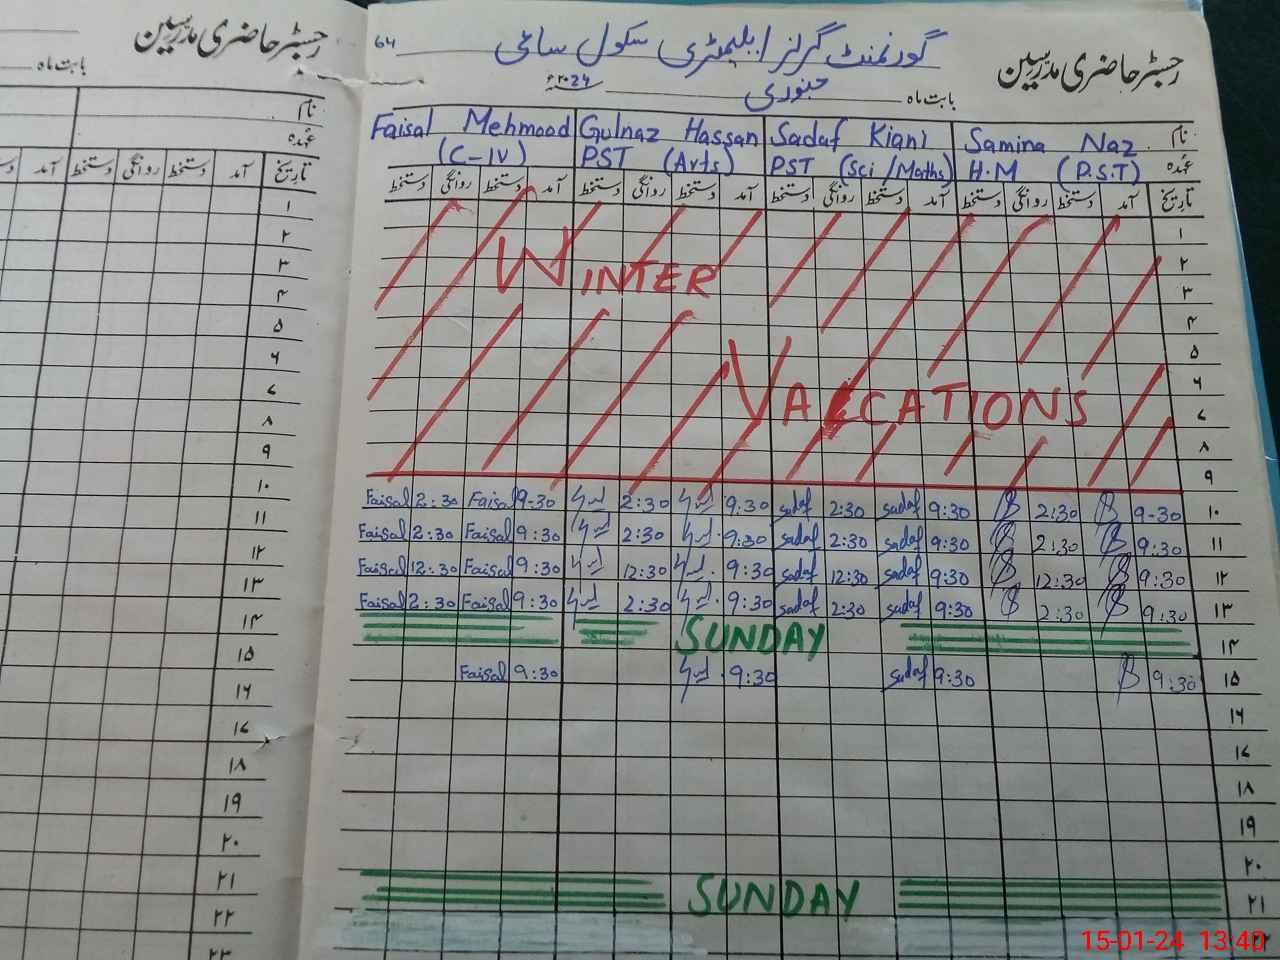 رجسٹر حاضری مدرسین
بابت ماہ
نام
عہدہ
تاریخ آمد دستخط روانگی دستخط آمد
۱
۲
۳
۴
۵
۶
۷
۸
۹
۱۰
۱۱
۱۲
۱۳
۱۴
۱۵
۱۶
۱۷
۱۸
۱۹
۲۰
۲۱
۲۲
۲۳
64
گورنمنٹ گرلز ایلیمنٹری سکول سائی
رجسٹر حاضری مدرسین
بابت ماہ جنوری ۲۰24ء
نام Samina Naz Sadaf Kiani Gulnaz Hassan Faisal Mehmood
عہدہ H.M (P.S.T) PST (Sci/Maths) PST (Arts) (C-IV)
تاریخ آمد دستخط روانگی دستخط آمد دستخط روانگی دستخط آمد دستخط روانگی دستخط آمد دستخط روانگی دستخط
۱
۲
WINTER
۳
۴
۵
۶
VACATIONS
۷
۸
۹
Faisal 2:30 Faisal 9-30 2:30 9:30 sadaf 2:30 sadaf 9:30 2:30 9-30 ۱۰
Faisal 2:30 Faisal 9:30 2:30 9:30 sadaf 2:30 sadaf 9:30 2:30 9:30 ۱۱
Faisal 12:30 Faisal 9:30 12:30 9:30 sadaf 12:30 sadaf 9:30 12:30 9:30 ۱۲
Faisal 2:30 Faisal 9:30 2:30 9:30 sadaf 2:30 sadaf 9:30 2:30 9:30 ۱۳
SUNDAY ۱۴
Faisal 9:30 9:30 sadaf 9:30 9:30 ۱۵
۱۶
۱۷
۱۸
۱۹
۲۰
SUNDAY ۲۱
15-01-24 13:40